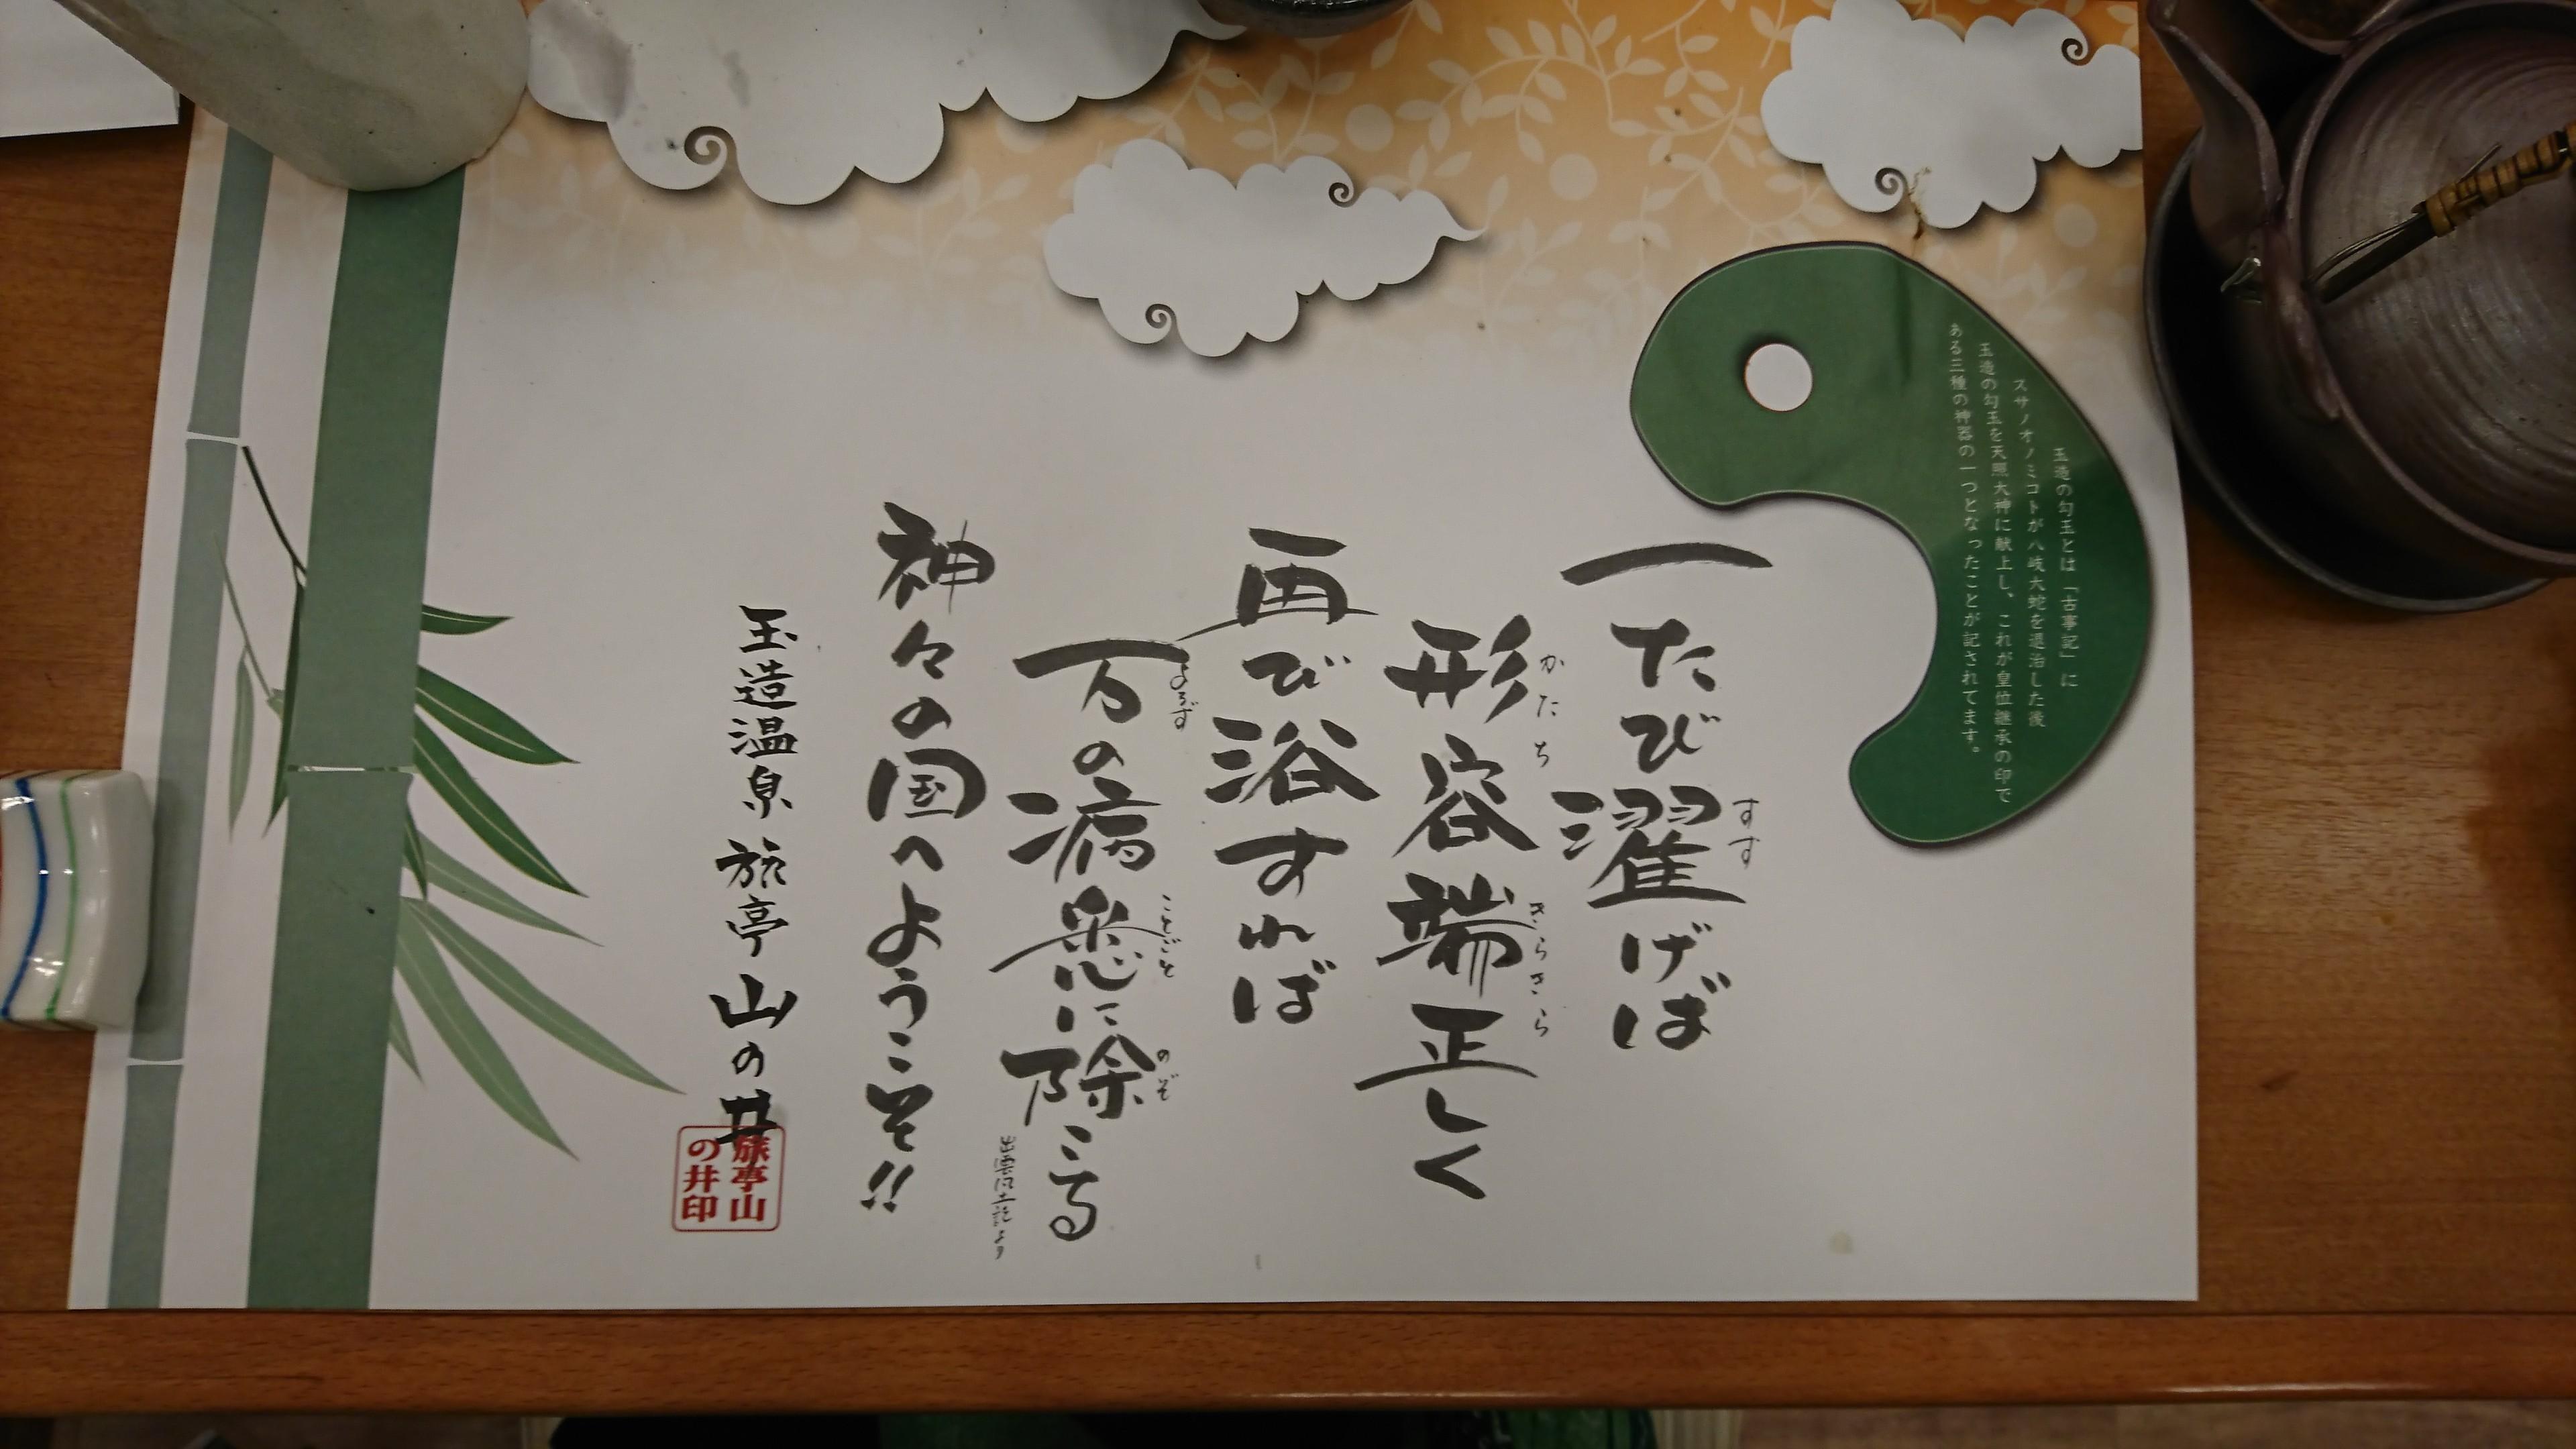 玉造の勾玉とは「古事記」に
スサノオノミコトが八岐大蛇を退治した後
玉造の勾玉を天照大神に献上し、これが皇位継承の印で
ある三種の神器の一つとなったことが記されてます。
一たび濯げば
すす
形容端正しく
かたち
きらきら
再び浴すれば
万の病悉に除こる
よろず
ことごと
のぞ
出雲風土記より
神々の国へようこそ!!
玉造温泉 旅亭 山の井
旅亭山
の井印